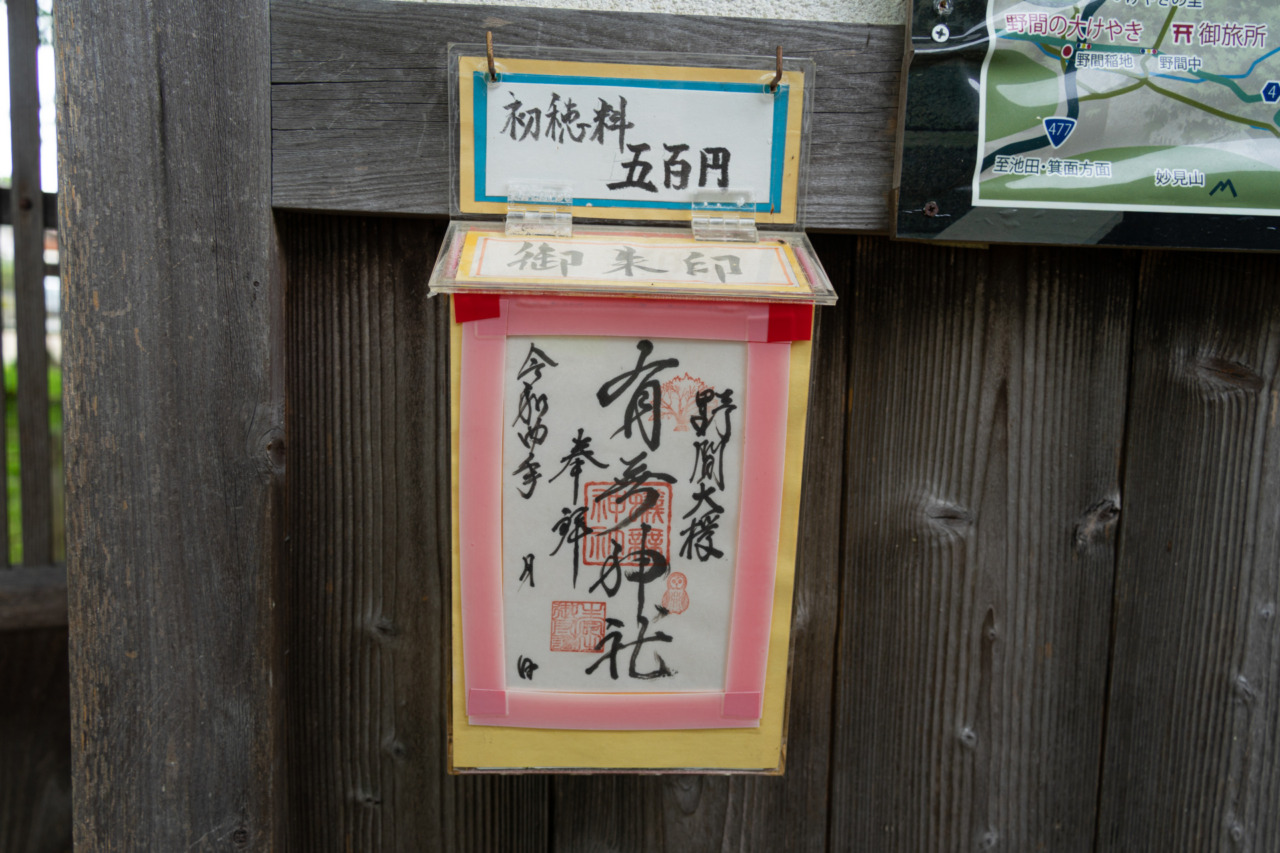 初穂料
五百円
御朱印
野間大欅
有無神社
奉拝
令和四年 月 日
野間の大けやき
御旅所
野間稲地
野間中
477
4
至池田・箕面方面
妙見山